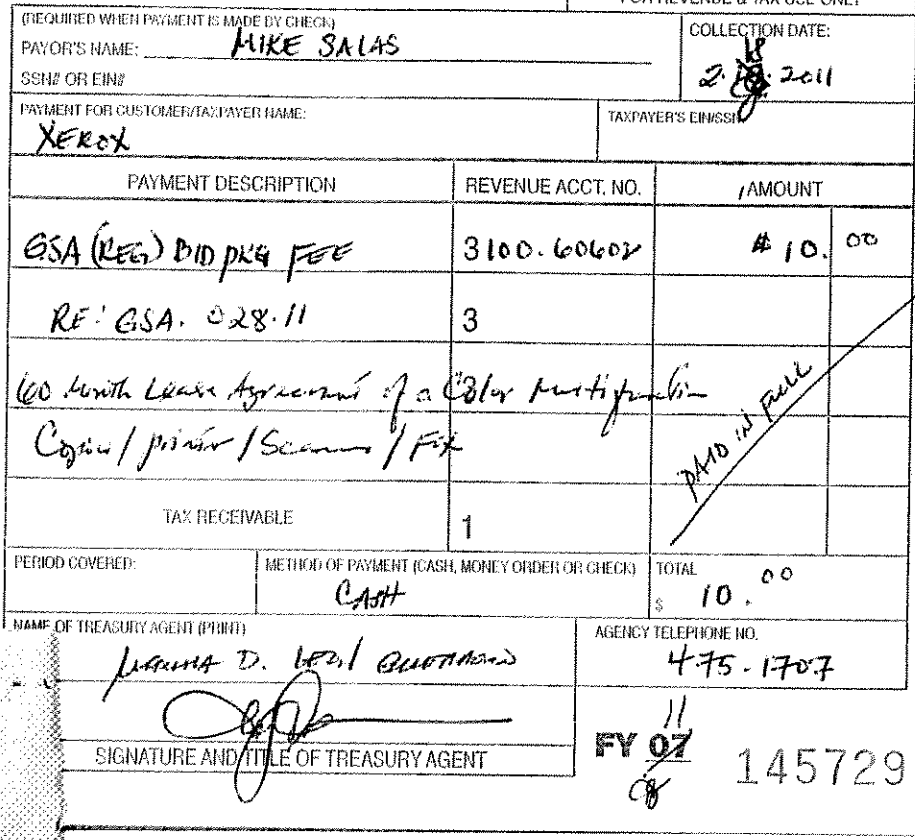 FOR REVENUE & TAX USE ONLY
(REQUIRED WHEN PAYMENT IS MADE BY CHECK)
PAYOR'S NAME: MIKE SALAS
COLLECTION DATE:
18
2. 2011
SSN# OR EIN#
PAYMENT FOR CUSTOMER/TAXPAYER NAME:
XEROX
TAXPAYER'S EIN/SSN
PAYMENT DESCRIPTION REVENUE ACCT. NO. AMOUNT
GSA (REG) BID PKG FEE 3100.60602 $ 10. 00
RE: GSA. 028.11 3
60 Month Lease Agreement of a Color Multifunction 3
Copier / printer / Scanner / Fax
PAID IN FULL
TAX RECEIVABLE 1
PERIOD COVERED:
METHOD OF PAYMENT (CASH, MONEY ORDER OR CHECK)
CASH
TOTAL
$ 10.00
NAME OF TREASURY AGENT (PRINT)
D.
AGENCY TELEPHONE NO.
475-1707
SIGNATURE AND TITLE OF TREASURY AGENT
11
FY 07
145729